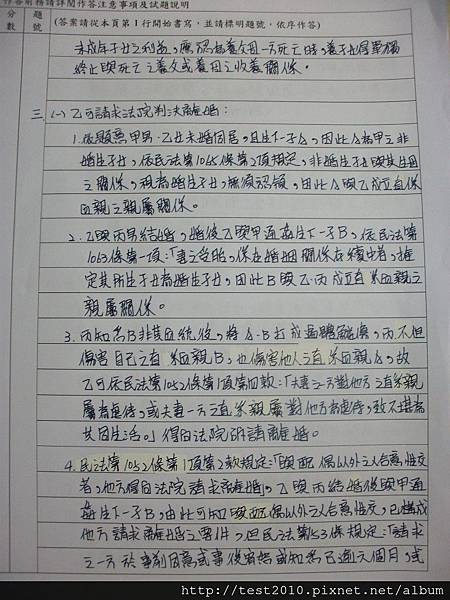 作答前務請詳閱作答注意事項及試題說明
分數
題號
(答案請從本頁第1行開始書寫,並請標明題號,依序作答)
未成年子女之利益,應認為養父母一方死亡時,養子女得單獨
終止與死亡之養父或養母之收養關係。
三、(一)乙可請求法院判決離婚:
1.依題意甲男、乙女未婚同居,且生下一子A,因此A為甲之非
婚生子女,依民法第1065條第2項規定,非婚生子女與其生母
之關係,視為婚生子女,無須認領,因此A與乙成立直系
血親之親屬關係。
2.乙與丙男結婚,婚後乙與甲通姦生下一子B,依民法第
1063條第一項:「妻之受胎,係在婚姻關係存續中者,推
定其所生子女為婚生子女,因此B與乙、丙成立直系血親之
親屬關係。
3.丙知悉B非其血統後,將A、B打成遍體鱗傷,丙不但
傷害自己之直系血親B,也傷害他人之直系血親A,故
乙可依民法第1052條第1項第四款:「夫妻之一方對他方之直系親
屬為虐待,或夫妻一方之直系親屬對他方為虐待,致不堪為
共同生活。」得向法院聲請離婚。
4.民法第1052條第1項第2款規定:「與配偶以外之人合意性交
者,他方得向法院請求離婚」,乙與丙結婚後與甲通
姦生下一子B,由此可知與配偶以外之人合意性交,已構成
他方請求離婚之要件,但民法第1053條規定:「請求
之一方於事前同意或事後宥恕或知悉已逾六個月,或
http://test2010.pixnet.net/album